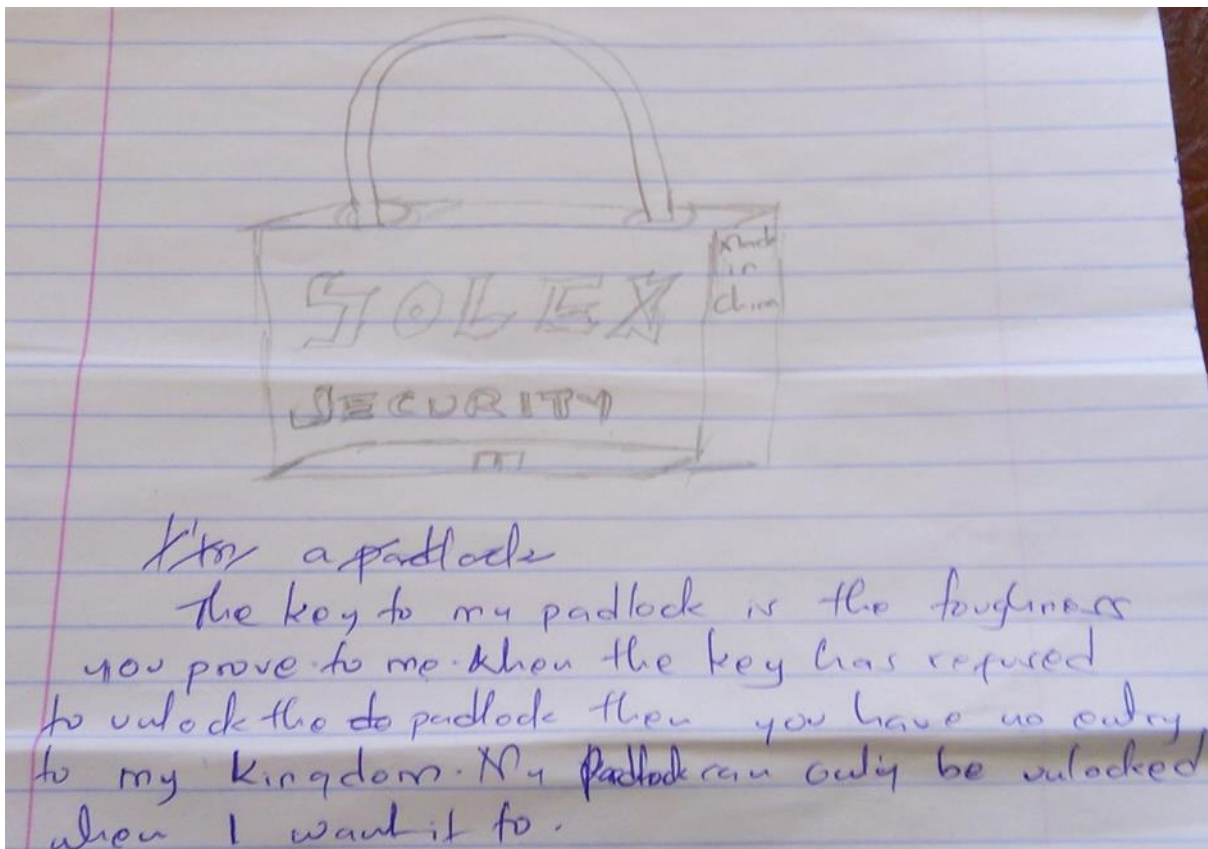 SOLEX
Made
in
China
SECURITY
I'm a padlock
The key to my padlock is the toughness
you prove to me. When the key has refused
to unlock the do padlock then you have no entry
to my kingdom. My Padlock can only be unlocked
when I want it to.